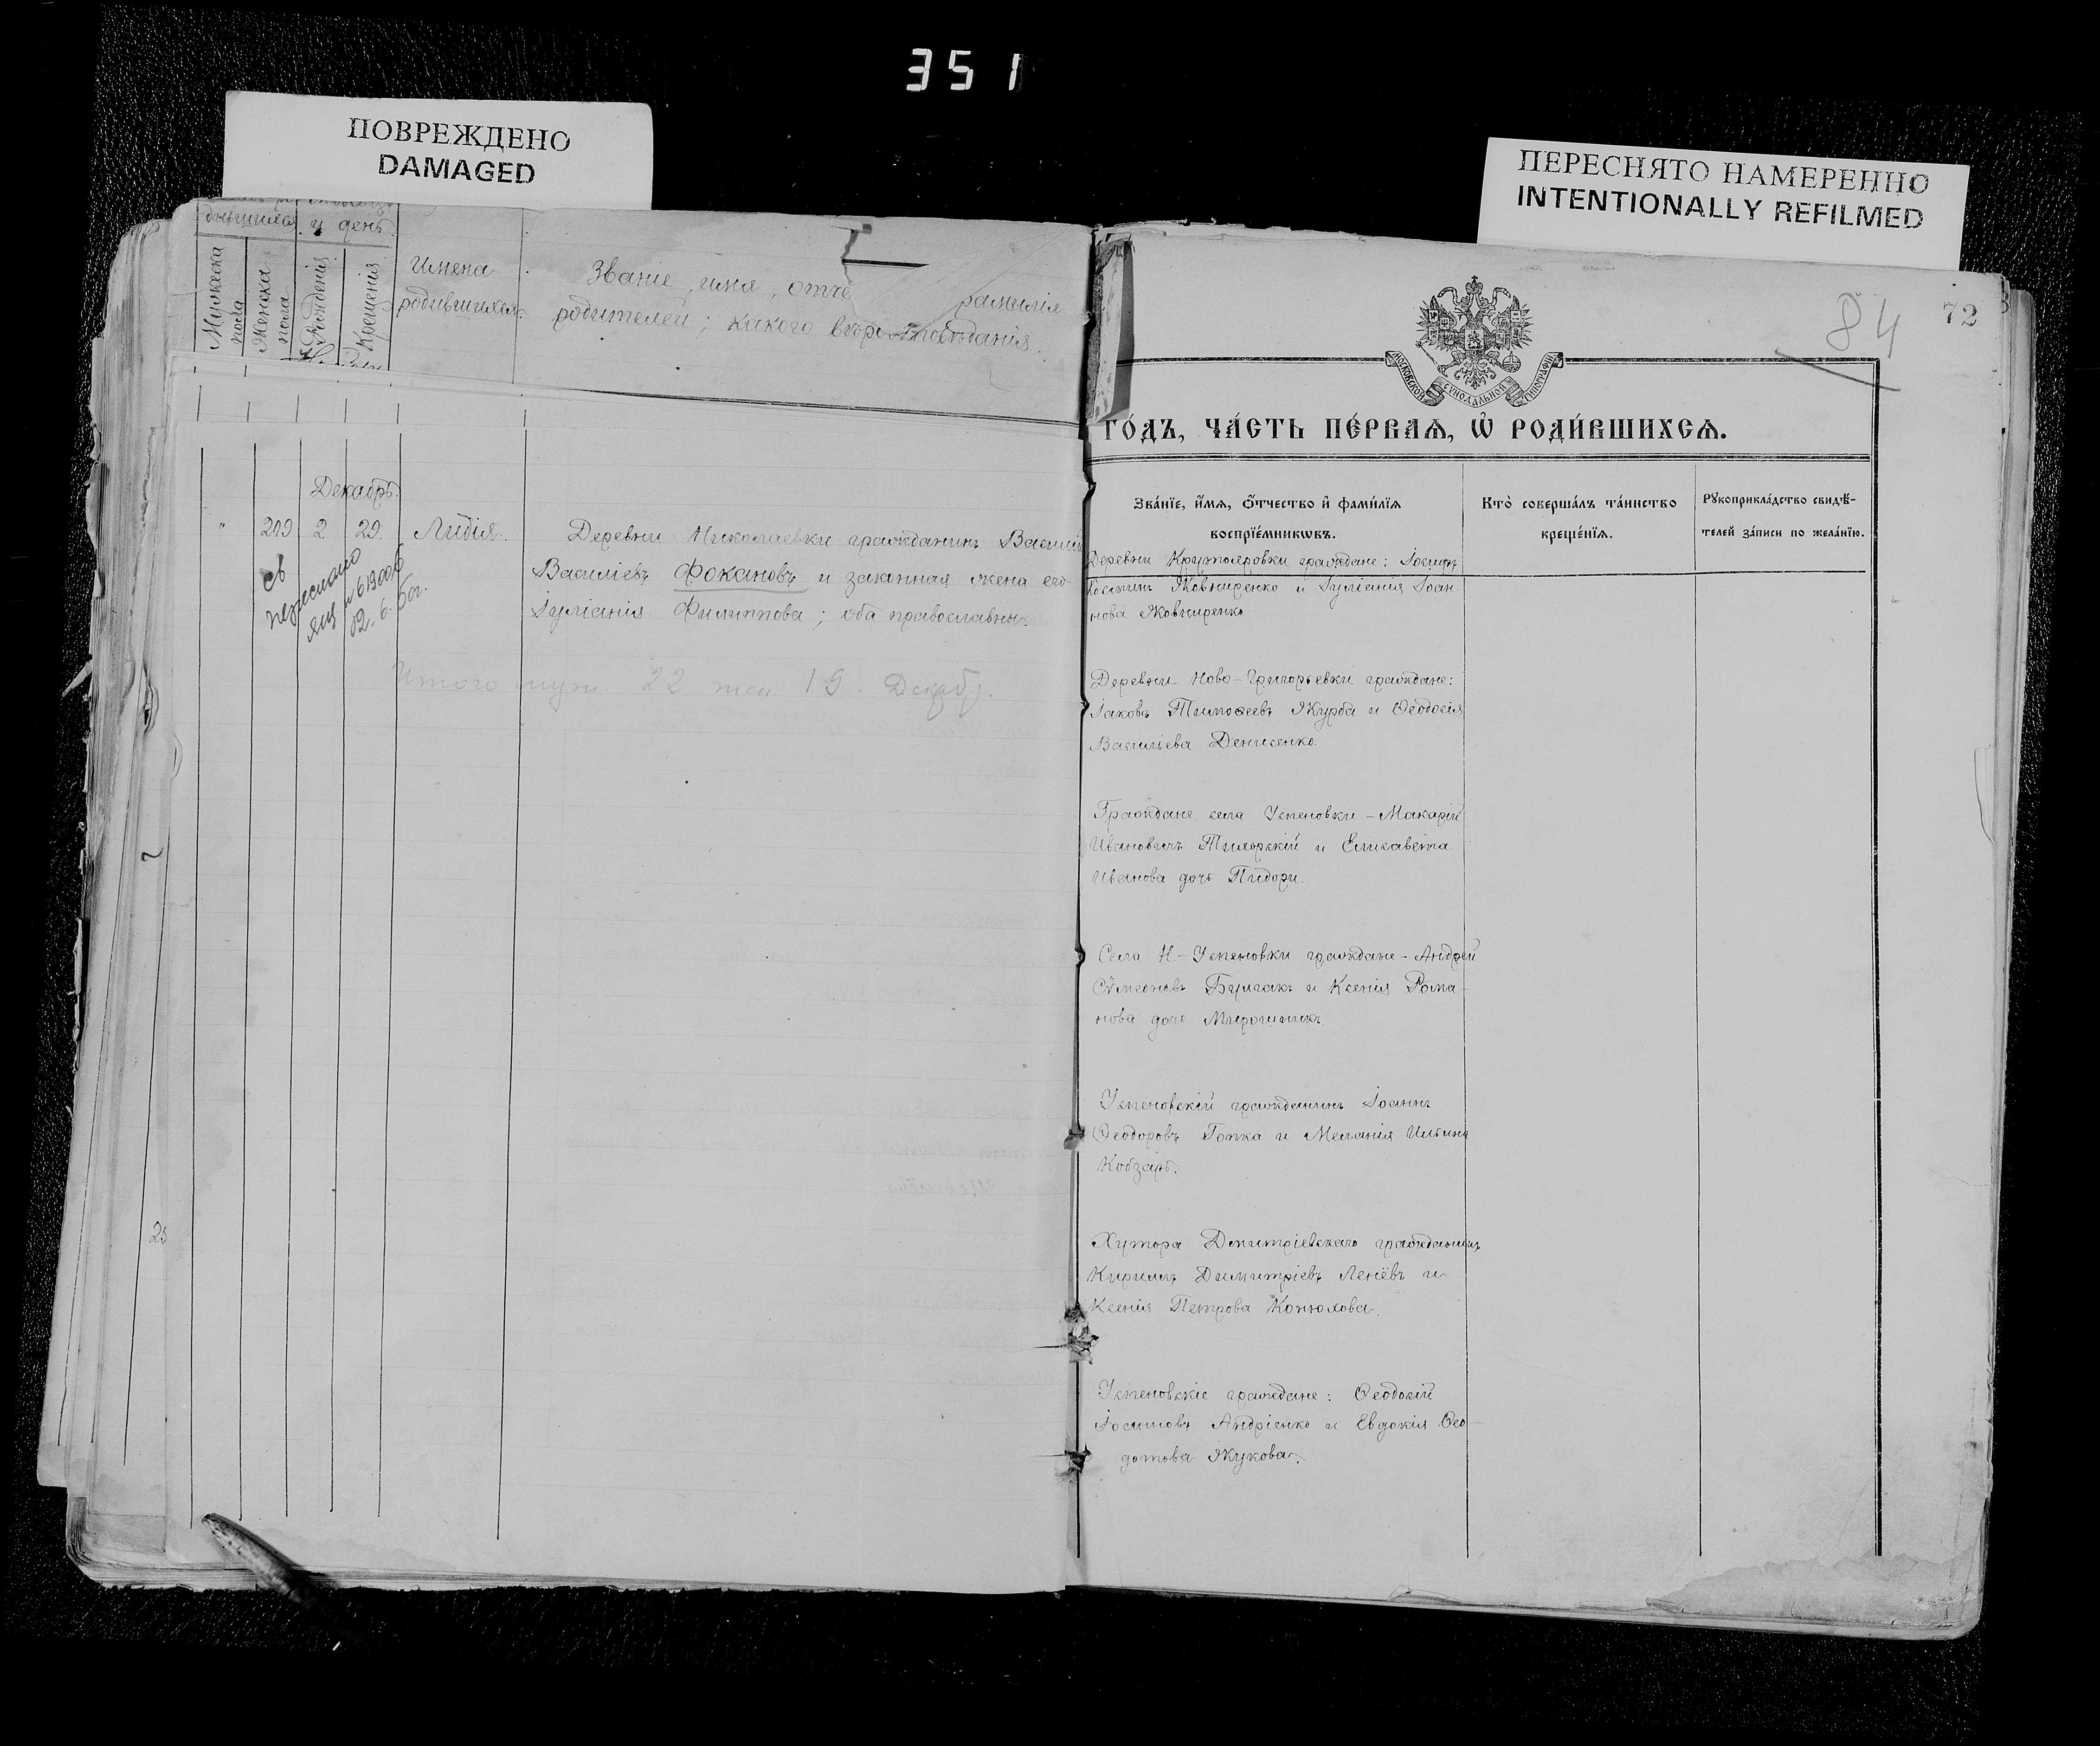 351
ПОВРЕЖДЕНО
DAMAGED
ПЕРЕСНЯТО НАМЕРЕННО
INTENTIONALLY REFILMED
и день.
Мужеска пола
Женска пола
Рожденія
Крещенія
Имена
родившихся.
Званіе, имя, отче фамилія
родителей; какого вѣроисповѣданія.
Декабрь.
" 219 2 29. Лидія.
Деревни Николаевки гражданинъ Василій
Василіевъ Фокановъ и законная жена его
Іуліанія Филиппова; оба православны.
Итого муж. 22 жен 19. Декабр.
84
72
МОСКОВСКОЙ СѴНОДАЛЬНОЙ ТИПОГРАФІИ
ГО́ДЪ, ЧА́СТЬ ПЕ́РВАѦ, Ѡ҆ РОДИ́ВШИХСѦ.
Зва́нїе, и҆́мѧ, ѻ҆́тчество и҆ фами́лїѧ
воспрїе́мникѡвъ.
Кто̀ соверша́лъ та́инство
креще́нїѧ.
Рꙋкоприкла́дство свидѣ́-
телей за́писи по жела́нїю.
Деревни Крутояровки граждане: Іосифъ
Костинъ Жовниренко и Іуліанія Іоан-
нова Жовниренко
Деревни Ново-Григорьевки граждане:
Іаковъ Тимоѳеевъ Журба и Ѳеодосія
Васильева Денисенко.
Граждане села Успеновки - Макарій
Ивановичъ Тиморскій и Елисавета
Иванова дочь Пидори.
Села Н.-Успеновки граждане - Андрей
Сѵмеоновъ Булгакъ и Ксенія Рома-
нова дочь Мирошникъ
Успеновскій гражданинъ Іоаннъ
Ѳеодоровъ Гопка и Меланія Ильина
Кобзарь.
Хутора Дмитріевскаго гражданинъ
Кириллъ Димитріевъ Ленёвъ и
Ксенія Петрова Конюхова.
Успеновскіе граждане: Ѳеодосій
Іосифовъ Андріенко и Евдокія Ѳео-
дотова Жукова.